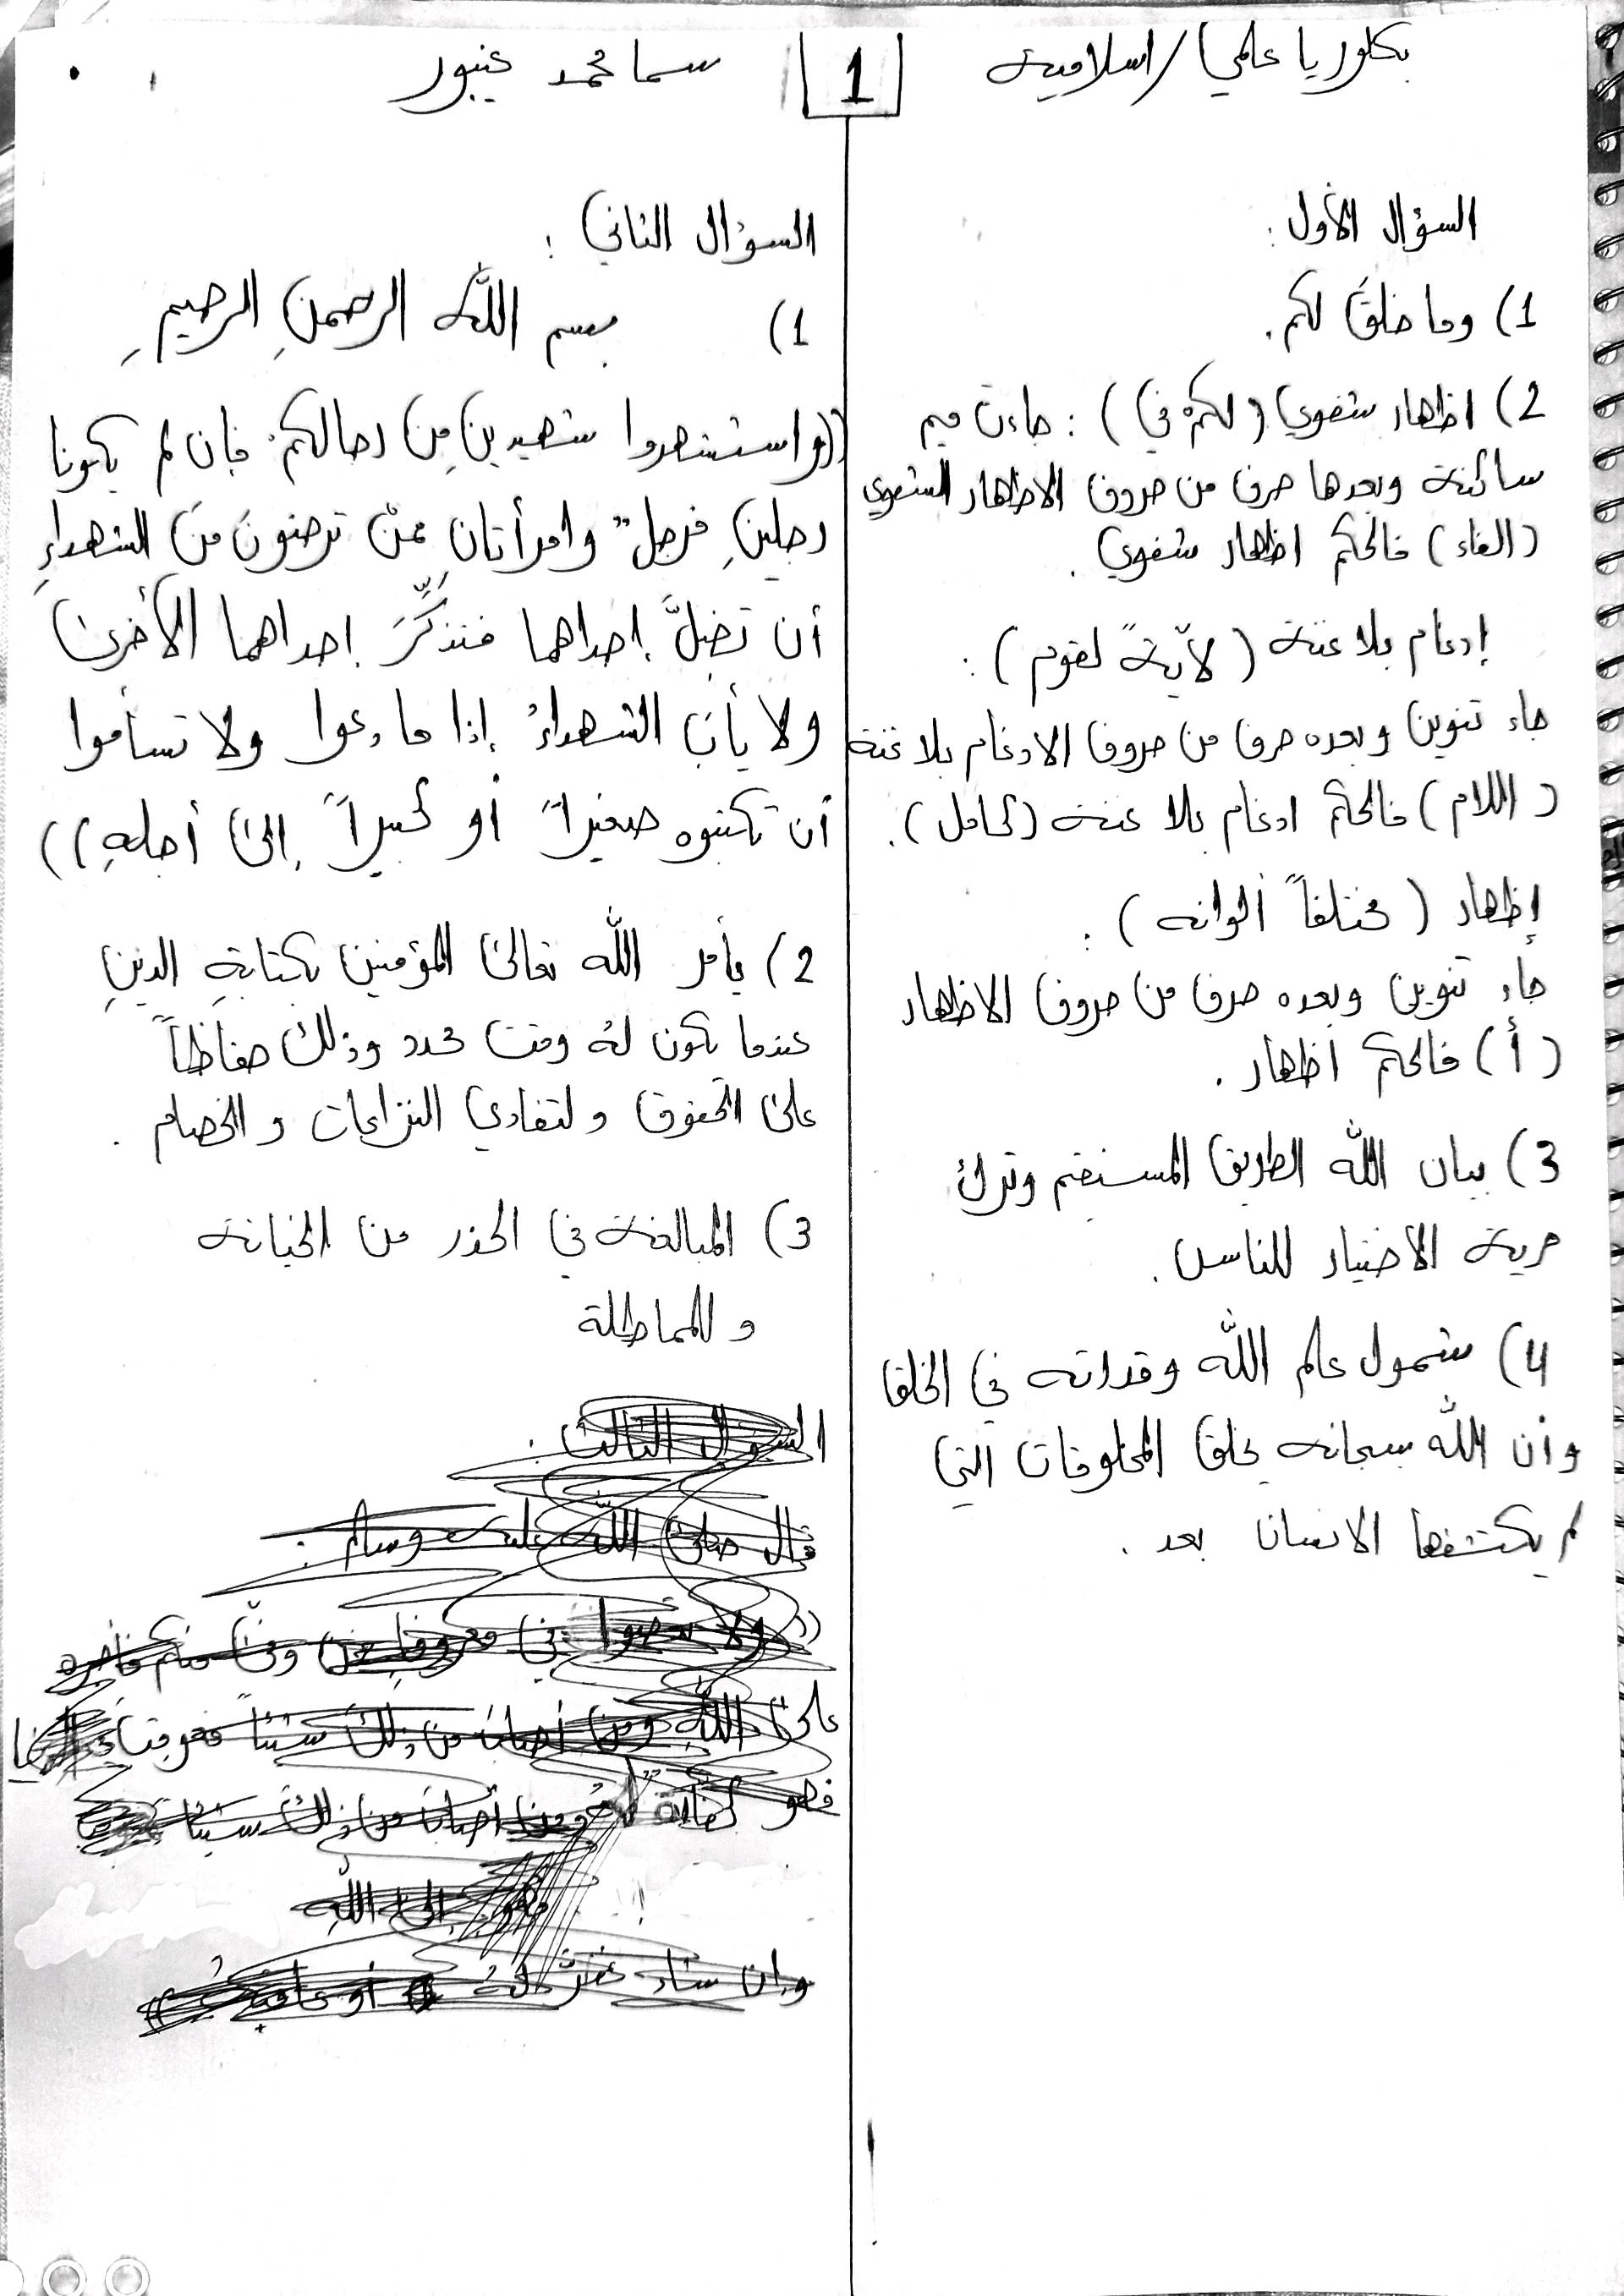 بكلوريا علمي / اسلامية
1
سما محمد عنبور
السؤال الأول :
1) وما خلقَ لكم.
2) اظهار شفوي (لكمْ في) : جاءت ميم
ساكنة وبعدها حرف من حروف الاظهار الشفوي
(الفاء) فالحكم اظهار شفوي .
إدغام بلا غنة (لآيةً لقوم) :
جاء تنوين وبعده حرف من حروف الادغام بلا غنة
(اللام) فالحكم ادغام بلا غنة (كامل) .
إظهار (مختلفاً ألوانه) :
جاء تنوين وبعده حرف من حروف الاظهار
(أ) فالحكم اظهار .
3) بيان الله الطريق المستقيم وترك
حرية الاختيار للناس .
4) شمول علم الله وقدراته في الخلق
وأن الله سبحانه يخلق المخلوقات التي
لم يكتشفها الانسان بعد .
السؤال الثاني :
1) بسم الله الرحمنِ الرحيمِ
((واستشهدوا شهيدينِ من رجالكم فإن لم يكونا
رجلينِ فرجلٌ وامرأتانِ ممّن ترضونَ منَ الشهداءِ
أن تضلَّ إحداهما فتذكِّرَ إحداهما الأخرى
ولا يأبَ الشهداءُ إذا ما دعوا ولا تسأموا
أن تكتبوه صغيراً أو كبيراً إلى أجلهِ))
2) يأمر الله تعالى المؤمنين بكتابةِ الدينِ
عندما يكون لهُ وقت محدد وذلك حفاظاً
على الحقوق ولتفادي النزاعات والخصام .
3) المبالغة في الحذر من الخيانة
و للمماطلة
السؤال الثالث :
قال صلى الله عليه وسلم :
((ولا تعصوا في معروفٍ فمن وفىّ منكم فأجره
على اللهِ ومن أصابَ من ذلكَ شيئاً فعوقبَ في الدنيا
فهو كفارةٌ لهُ ومن أصابَ من ذلكَ شيئاً
فهو إلى اللهِ
وإن شاء غفرَ لهُ أو عاقبهُ